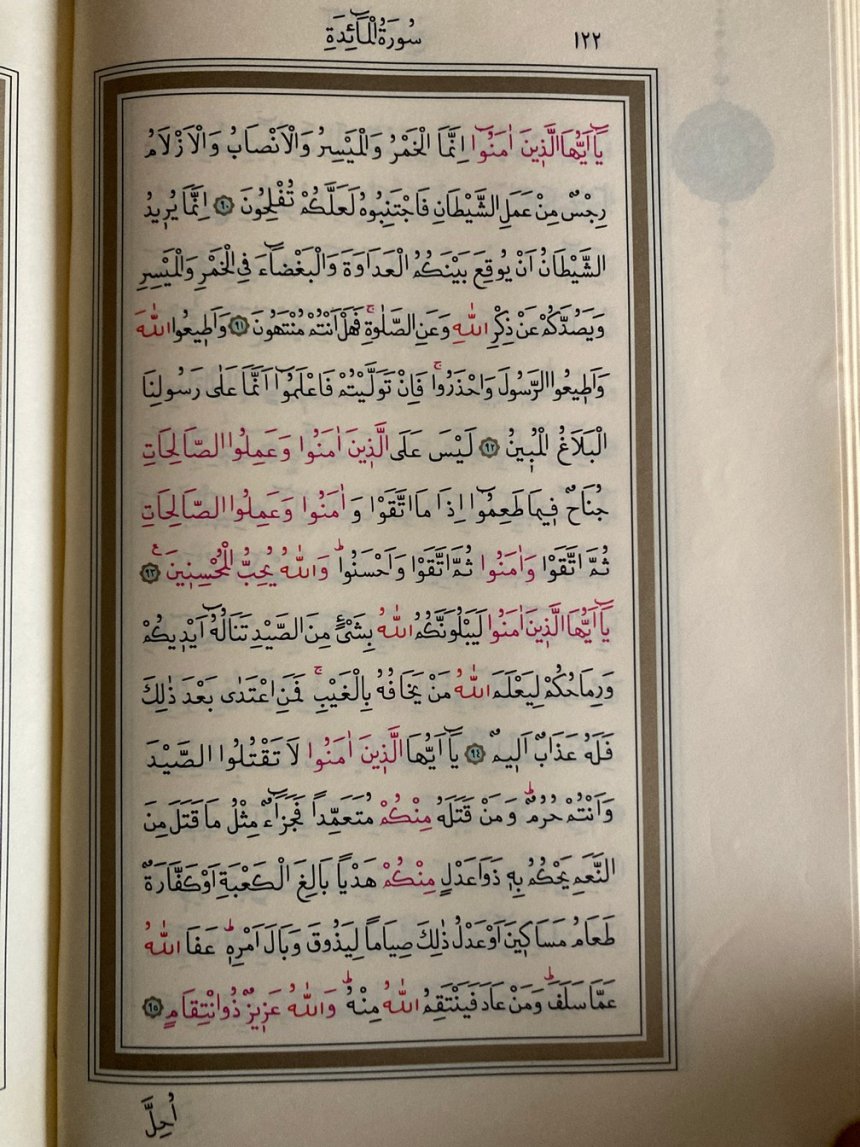 سُورَةُ الْمَٓائِدَةِ ١٢٢
يَٓا اَيُّهَا الَّذٖينَ اٰمَنُٓوا اِنَّمَا الْخَمْرُ وَالْمَيْسِرُ وَالْاَنْصَابُ وَالْاَزْلَامُ
رِجْسٌ مِنْ عَمَلِ الشَّيْطَانِ فَاجْتَنِبُوهُ لَعَلَّكُمْ تُفْلِحُونَ ﴿٩٠﴾ اِنَّمَا يُرٖيدُ
الشَّيْطَانُ اَنْ يُوقِعَ بَيْنَكُمُ الْعَدَاوَةَ وَالْبَغْضَٓاءَ فِي الْخَمْرِ وَالْمَيْسِرِ
وَيَصُدَّكُمْ عَنْ ذِكْرِ اللّٰهِ وَعَنِ الصَّلٰوةِۚ فَهَلْ اَنْتُمْ مُنْتَهُونَ ﴿٩١﴾ وَاَطٖيعُوا اللّٰهَ
وَاَطٖيعُوا الرَّسُولَ وَاحْذَرُواۚ فَاِنْ تَوَلَّيْتُمْ فَاعْلَمُٓوا اَنَّمَا عَلٰى رَسُولِنَا
الْبَلَاغُ الْمُبٖينُ ﴿٩٢﴾ لَيْسَ عَلَى الَّذٖينَ اٰمَنُوا وَعَمِلُوا الصَّالِحَاتِ
جُنَاحٌ فٖيمَا طَعِمُٓوا اِذَا مَا اتَّقَوْا وَاٰمَنُوا وَعَمِلُوا الصَّالِحَاتِ
ثُمَّ اتَّقَوْا وَاٰمَنُوا ثُمَّ اتَّقَوْا وَاَحْسَنُواؕ وَاللّٰهُ يُحِبُّ الْمُحْسِنٖينَ ࣖ ﴿٩٣﴾
يَٓا اَيُّهَا الَّذٖينَ اٰمَنُوا لَيَبْلُوَنَّكُمُ اللّٰهُ بِشَيْءٍ مِنَ الصَّيْدِ تَنَالُهُٓ اَيْدٖيكُمْ
وَرِمَاحُكُمْ لِيَعْلَمَ اللّٰهُ مَنْ يَخَافُهُ بِالْغَيْبِۚ فَمَنِ اعْتَدٰى بَعْدَ ذٰلِكَ
فَلَهُ عَذَابٌ اَلٖيمٌ ﴿٩٤﴾ يَٓا اَيُّهَا الَّذٖينَ اٰمَنُوا لَا تَقْتُلُوا الصَّيْدَ
وَاَنْتُمْ حُرُمٌؕ وَمَنْ قَتَلَهُ مِنْكُمْ مُتَعَمِّداً فَجَزَٓاءٌ مِثْلُ مَا قَتَلَ مِنَ
النَّعَمِ يَحْكُمُ بِهٖ ذَوَا عَدْلٍ مِنْكُمْ هَدْياً بَالِغَ الْكَعْبَةِ اَوْ كَفَّارَةٌ
طَعَامُ مَسَاكٖينَ اَوْ عَدْلُ ذٰلِكَ صِيَاماً لِيَذُوقَ وَبَالَ اَمْرِهٖؕ عَفَا اللّٰهُ
عَمَّا سَلَفَؕ وَمَنْ عَادَ فَيَنْتَقِمُ اللّٰهُ مِنْهُؕ وَاللّٰهُ عَزٖيزٌ ذُو انْتِقَامٍ ﴿٩٥﴾
اُحِلَّ